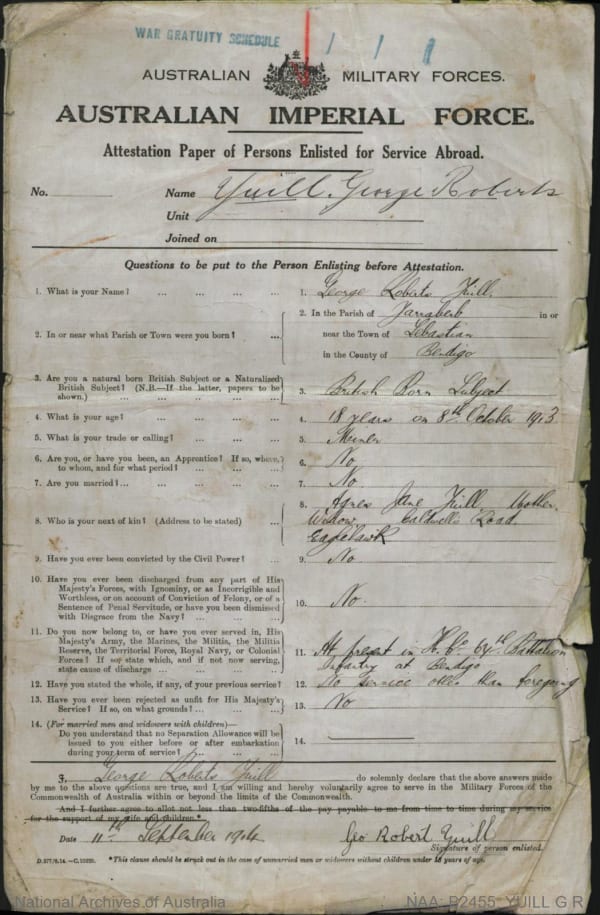 WAR GRATUITY SCHEDULE
AUSTRALIAN MILITARY FORCES.
AUSTRALIAN IMPERIAL FORCE.
Attestation Paper of Persons Enlisted for Service Abroad.
No. Name Yuill. George Roberts
Unit
Joined on
Questions to be put to the Person Enlisting before Attestation.
1. What is your Name? ... ... ... ... 1. George Roberts Yuill.
2. In or near what Parish or Town were you born? ... 2. In the Parish of Yarraberb in or
near the Town of Sebastian
in the County of Bendigo
3. Are you a natural born British Subject or a Naturalized
British Subject? (N.B.—If the latter, papers to be
shown.) ... ... ... ... 3. British Born Subject
4. What is your age? ... ... ... ... 4. 18 years on 8th October 1913
5. What is your trade or calling? ... ... ... 5. Miner
6. Are you, or have you been, an Apprentice? If so, where,
to whom, and for what period? ... ... ... 6. No
7. Are you married? ... ... ... ... 7. No
8. Who is your next of kin? (Address to be stated) ... 8. Agnes Jane Yuill, Mother,
Widow, Caldwell's Road,
Eaglehawk
9. Have you ever been convicted by the Civil Power? ... 9. No
10. Have you ever been discharged from any part of His
Majesty's Forces, with Ignominy, or as Incorrigible and
Worthless, or on account of Conviction of Felony, or of a
Sentence of Penal Servitude, or have you been dismissed
with Disgrace from the Navy? ... ... ... 10. No.
11. Do you now belong to, or have you ever served in, His
Majesty's Army, the Marines, the Militia, the Militia
Reserve, the Territorial Force, Royal Navy, or Colonial
Forces? If so, state which, and if not now serving,
state cause of discharge ... ... ... 11. At present in H. Co. 67th Battalion
Infantry at Bendigo
12. Have you stated the whole, if any, of your previous service? 12. No service other than foregoing
13. Have you ever been rejected as unfit for His Majesty's
Service? If so, on what grounds? ... ... ... 13. No
14. (For married men and widowers with children)—
Do you understand that no Separation Allowance will be
issued to you either before or after embarkation
during your term of service? ... ... ... 14.
I, George Roberts Yuill do solemnly declare that the above answers made
by me to the above questions are true, and I am willing and hereby voluntarily agree to serve in the Military Forces of the
Commonwealth of Australia within or beyond the limits of the Commonwealth.
And I further agree to allot not less than two-fifths of the pay payable to me from time to time during my service
for the support of my wife and children.*
Date 11th September 1914 Geo Robert Yuill
Signature of person enlisted.
*This clause should be struck out in the case of unmarried men or widowers without children under 18 years of age.
National Archives of Australia NAA: B2455, YUILL G R